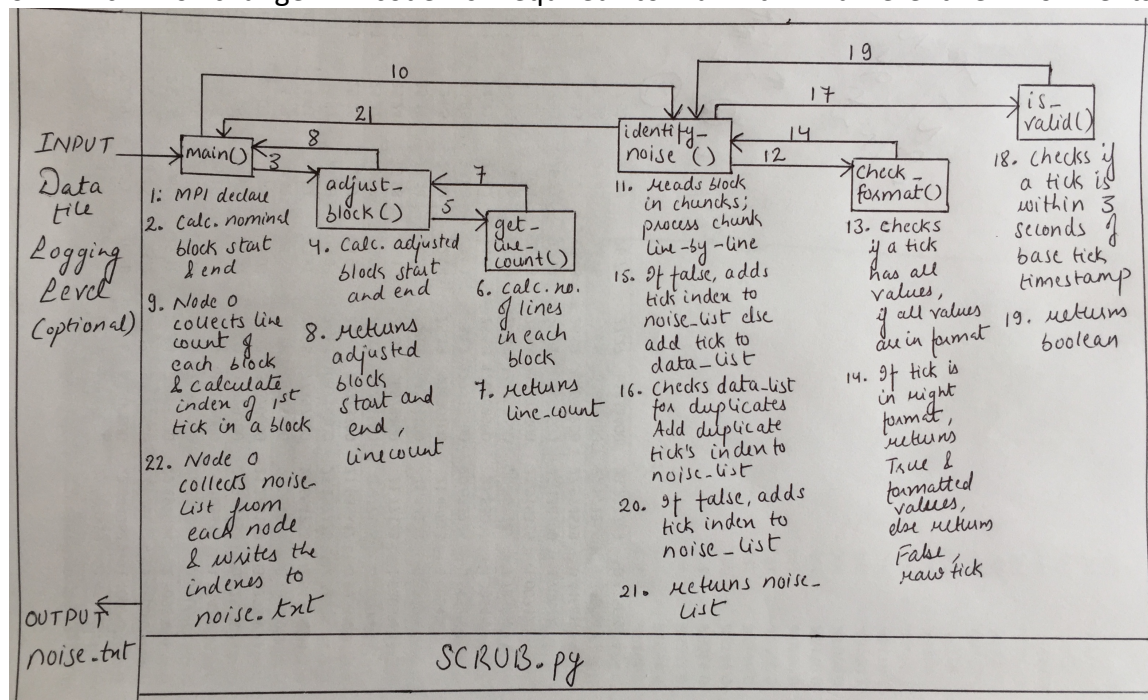 10
19
21
17
8
14
3
12
7
5
INPUT
Data
file
Logging
Level
(optional)
OUTPUT
noise.txt
main()
1. MPI declare
2. Calc. nominal
block start
& end
9. Node 0
collects line
count of
each block
& calculate
index of 1st
tick in a block
22. Node 0
collects noise-
list from
each node
& writes the
indexes to
noise.txt
adjust_
block()
4. Calc. adjusted
block start
and end
8. returns
adjusted
block
start and
end,
linecount
get_
line_
count()
6. calc. no.
of lines
in each
block
7. returns
line_count
identify_
noise ()
11. reads block
in chuncks;
process chunk
line-by-line
15. If false, adds
tick index to
noise_list else
add tick to
data_list
16. Checks data_list
for duplicates
Add duplicate
tick's index to
noise_list
20. If false, adds
tick index to
noise_list
21. returns noise_
list
check_
format()
13. checks
if a tick
has all
values,
if all values
are in format
14. If tick is
in right
format,
returns
True &
formatted
values,
else return
False,
raw tick
is_
valid()
18. checks if
a tick is
within 3
seconds of
base tick
timestamp
19. returns
boolean
SCRUB.py